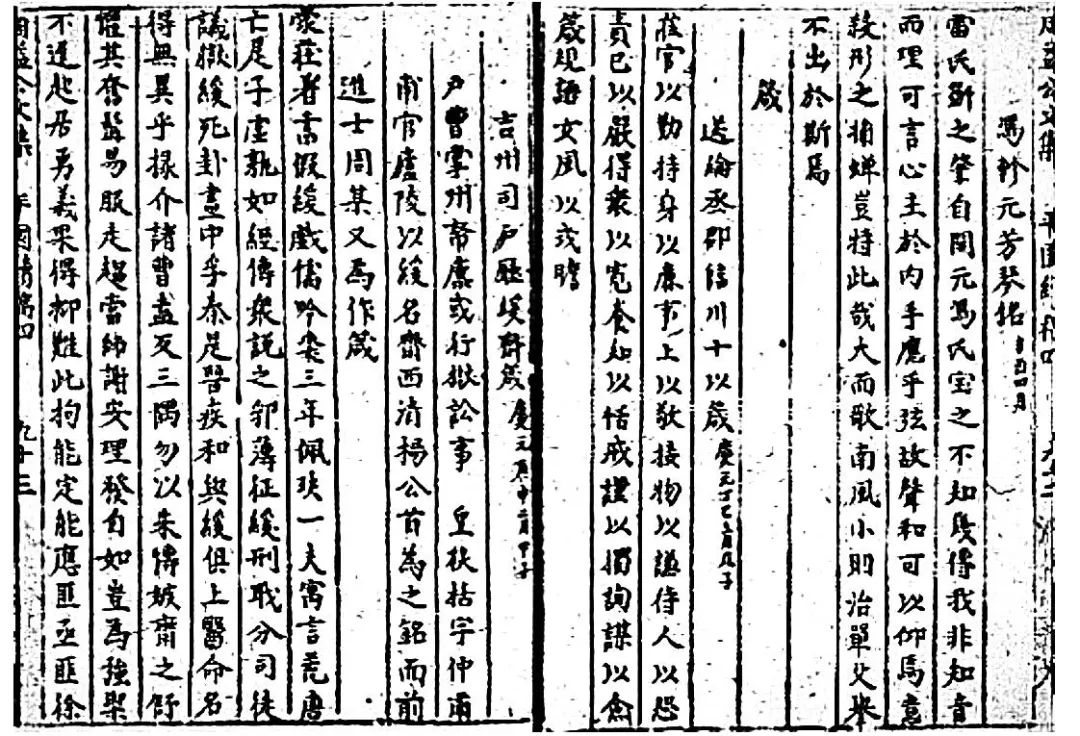 周益公文集 平園續稿四 九十二
馮軫元芳琴銘 辛酉四月
雷氏斲之肇自開元馮氏宝之不知幾傳我非知音
而理可言心主於内手應乎弦故聲和可以仰馬意
殺形之捕蟬豈特此哉大而歌南風小則治單父舉
不出於斯焉
箴
送綸丞郡臨川十以箴 慶元丁巳六月戊子
蒞官以勤持身以廉事上以敬接物以謙待人以恕
責已以嚴得衆以寬養知以恬戒謹以獨詢謀以僉
箴規語女夙以戒瞻
吉州司户廳緩齋箴 慶元庚申八月甲子
户曹掌州帑廩或行獄訟事 皇 括字仲甫
甫官廬陵以緩名齋西清楊公首為之銘而前
進士周某又為作箴
蒙莊著書假緩戲儒吟裘三年佩玦一夫寓言荒唐
亡是子虚孰如經傳衆説之郛薄征緩刑職分司徒
議獄緩死卦畫中孚秦是醫疾和與緩俱上醫命名
得無異乎掾介諸曹盍反三隅勿以朱博嫉齊之舒
懼其奮髯易服走趨當師謝安理發自如豈為強梁
不遑起居勇義果得抑難此拘能定能應匪亟匪徐
周益公文集 平園續稿四 九十三